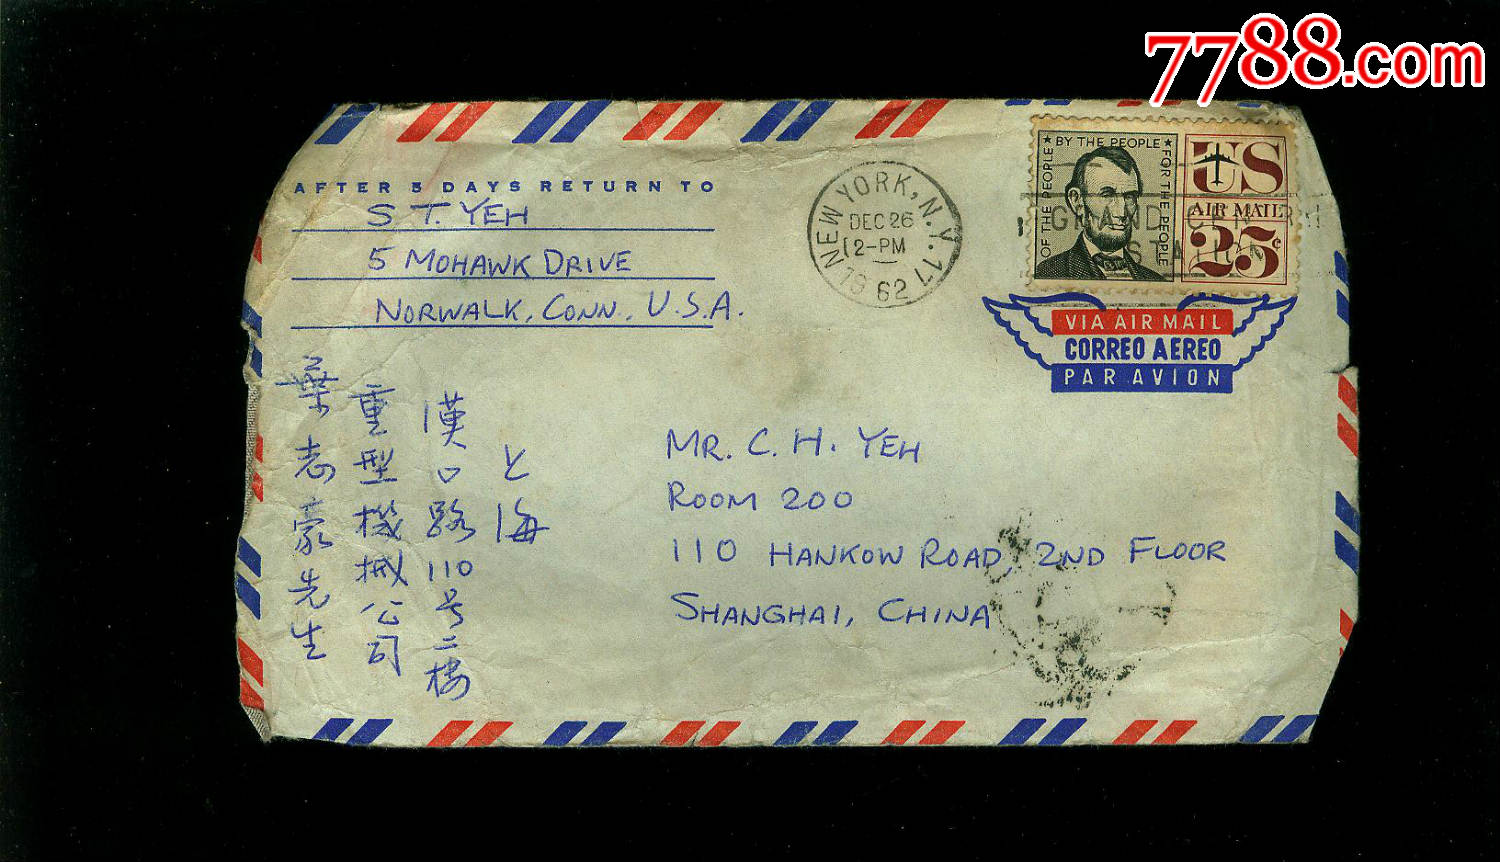 7788.com
AFTER 5 DAYS RETURN TO
S T. YEH
5 MOHAWK DRIVE
NORWALK, CONN., U.S.A.
NEW YORK, N.Y. 17
DEC 26
12-PM
1962
OF THE PEOPLE ★ BY THE PEOPLE ★ FOR THE PEOPLE
US
AIR MAIL
25¢
GRAND CEN
STA
VIA AIR MAIL
CORREO AEREO
PAR AVION
MR. C. H. YEH
ROOM 200
110 HANKOW ROAD, 2ND FLOOR
SHANGHAI, CHINA
上海
漢口路110号二楼
重型機械公司
葉志豪先生